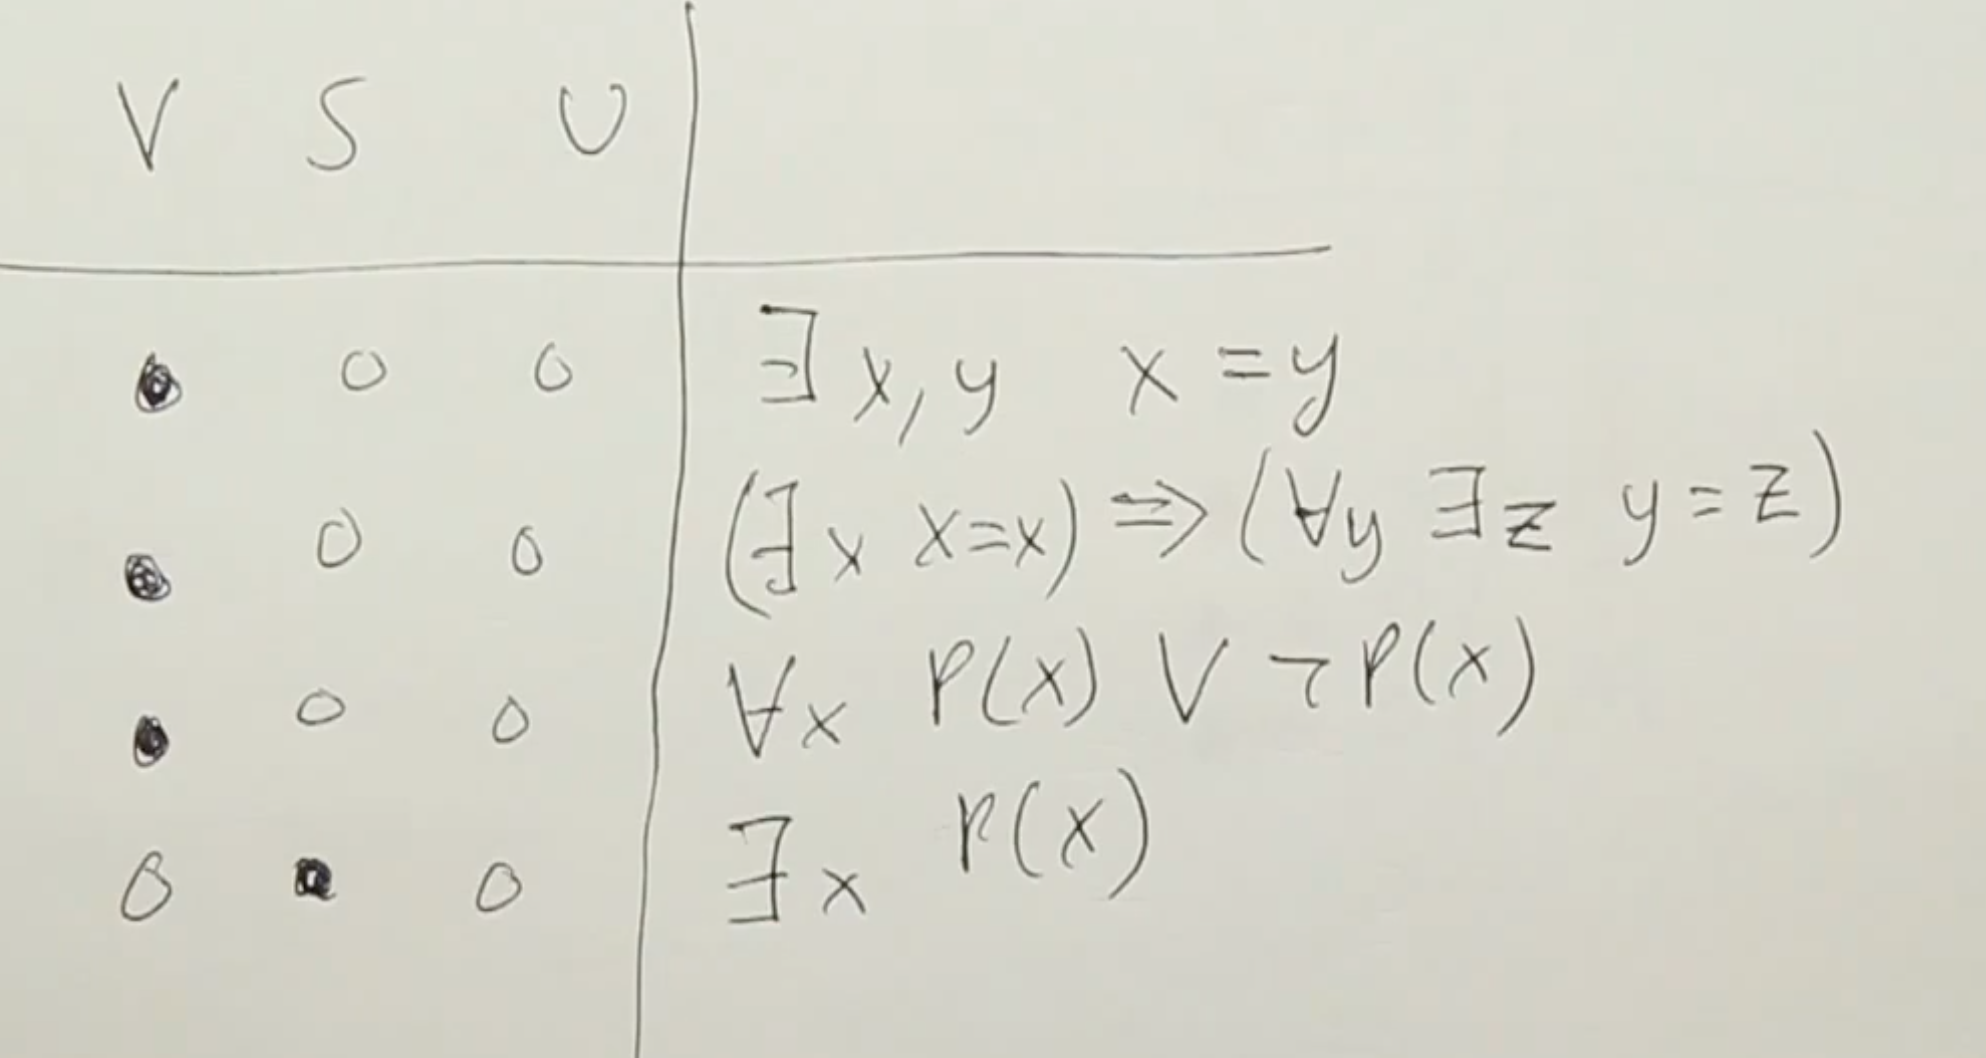 V S U
● ○ ○ ∃x,y x=y
● ○ ○ (∃x x=x) ⇒ (∀y ∃z y=z)
● ○ ○ ∀x P(x) ∨ ¬P(x)
○ ● ○ ∃x P(x)